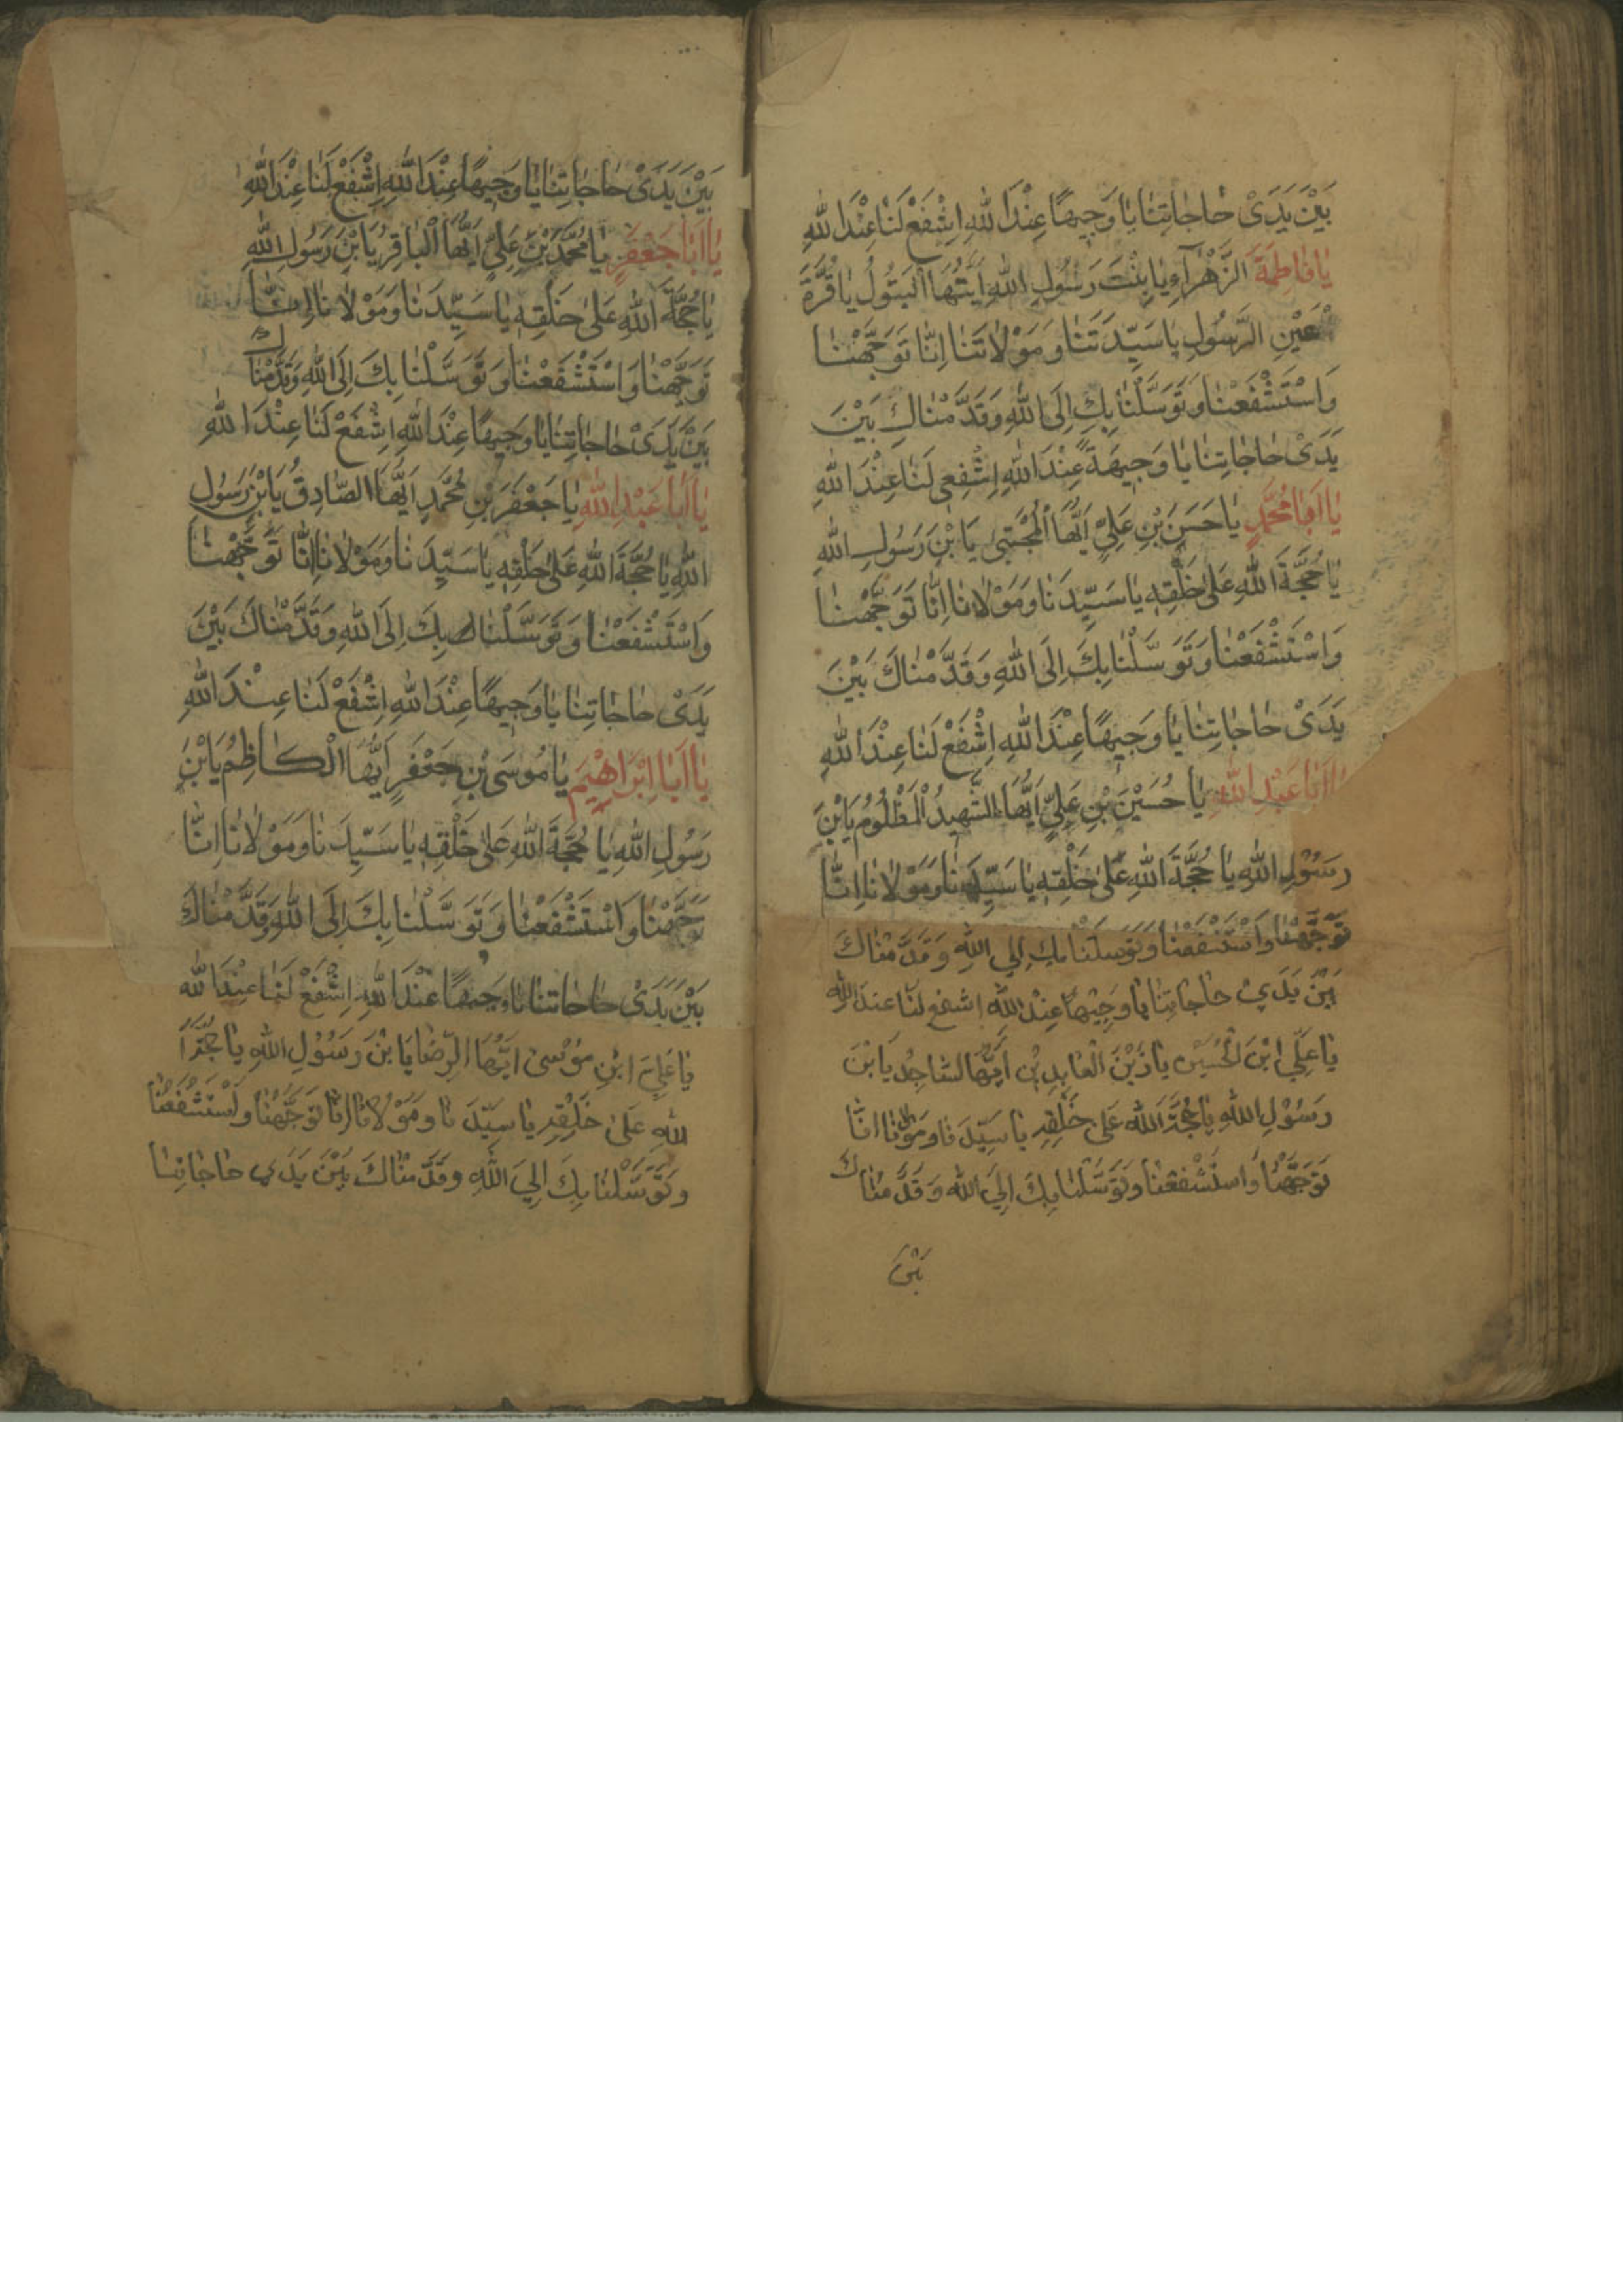 بَيْنَ يَدَىْ حَاجَاتِنَا يَا وَجِيهًا عِنْدَ اللهِ اِشْفَعْ لَنَا عِنْدَ اللهِ
يَا فَاطِمَةَ الزَّهْرَآءِ يَا بِنْتَ رَسُولِ اللهِ اَيَّتُهَا الْبَتُولُ يَا قُرَّةَ
عَيْنِ الرَّسُولِ يَا سَيِّدَتَنَا وَمَوْلَاتَنَا اِنَّا تَوَجَّهْنَا
وَاسْتَشْفَعْنَا وَتَوَسَّلْنَا بِكِ اِلَى اللهِ وَقَدَّمْنَاكِ بَيْنَ
يَدَىْ حَاجَاتِنَا يَا وَجِيهَةً عِنْدَ اللهِ اِشْفِعِى لَنَا عِنْدَ اللهِ
يَا اَبَا مُحَمَّدٍ يَا حَسَنَ بْنِ عَلِيٍّ اَيُّهَا الْمُجْتَبَى يَا بْنَ رَسُولِ اللهِ
يَا حُجَّةَ اللهِ عَلَى خَلْقِهِ يَا سَيِّدَنَا وَمَوْلَانَا اِنَّا تَوَجَّهْنَا
وَاسْتَشْفَعْنَا وَتَوَسَّلْنَا بِكَ اِلَى اللهِ وَقَدَّمْنَاكَ بَيْنَ
يَدَىْ حَاجَاتِنَا يَا وَجِيهًا عِنْدَ اللهِ اِشْفَعْ لَنَا عِنْدَ اللهِ
يَا اَبَا عَبْدِ اللهِ يَا حُسَيْنَ بْنِ عَلِيٍّ اَيُّهَا الشَّهِيدُ الْمَظْلُومُ يَا بْنَ
رَسُولِ اللهِ يَا حُجَّةَ اللهِ عَلَى خَلْقِهِ يَا سَيِّدَنَا وَمَوْلَانَا اِنَّا
تَوَجَّهْنَا وَاسْتَشْفَعْنَا وَتَوَسَّلْنَا بِكَ اِلَي اللهِ وَقَدَّمْنَاكَ
بَيْنَ يَدَيْ حَاجَاتِنَا يَا وَجِيْهًا عِنْدَ اللهِ اشفع لَنَا عِنْدَ اللهِ
يَا عَلِّي ابْنَ الْحُسَيْنِ يَا زَيْنَ الْعَابِدِيْنَ اَيُّهَا السَّاجِدُ يَا بْنَ
رَسُوْلِ اللهِ يَا حُجَّةَ اللهِ عَلَى خَلْقِهِ يَا سَيِّدَنَا وَمَوْلَانَا اِنَّا
تَوَجَّهْنَا وَاسْتَشْفَعْنَا وَتَوَسَّلْنَا بِكَ اِلَيَ اللهِ وَقَدَّمْنَاكَ
بَيْنَ
بَيْنَ يَدَىْ حَاجَاتِنَا يَا وَجِيهًا عِنْدَ اللهِ اِشْفَعْ لَنَا عِنْدَ اللهِ
يَا اَبَا جَعْفَرٍ يَا مُحَمَّدَ بْنَ عَلِيٍّ اَيُّهَا الْبَاقِرُ يَا بْنَ رَسُولِ اللهِ
يَا حُجَّةَ اللهِ عَلَى خَلْقِهِ يَا سَيِّدَنَا وَمَوْلَانَا اِنَّا
تَوَجَّهْنَا وَاسْتَشْفَعْنَا وَتَوَسَّلْنَا بِكَ اِلَى اللهِ وَقَدَّمْنَاكَ
بَيْنَ يَدَىْ حَاجَاتِنَا يَا وَجِيهًا عِنْدَ اللهِ اِشْفَعْ لَنَا عِنْدَ اللهِ
يَا اَبَا عَبْدِ اللهِ يَا جَعْفَرَ بْنِ مُحَمَّدٍ اَيُّهَا الصَّادِقُ يَا بْنَ رَسُولِ
اللهِ يَا حُجَّةَ اللهِ عَلَى خَلْقِهِ يَا سَيِّدَنَا وَمَوْلَانَا اِنَّا تَوَجَّهْنَا
وَاسْتَشْفَعْنَا وَتَوَسَّلْنَا بِكَ اِلَى اللهِ وَقَدَّمْنَاكَ بَيْنَ
يَدَىْ حَاجَاتِنَا يَا وَجِيهًا عِنْدَ اللهِ اِشْفَعْ لَنَا عِنْدَ اللهِ
يَا اَبَا اِبْرَاهِيْمَ يَا مُوسَى بْنِ جَعْفَرٍ اَيُّهَا الْكَاظِمُ يَا بْنَ
رَسُولِ اللهِ يَا حُجَّةَ اللهِ عَلَى خَلْقِهِ يَا سَيِّدَنَا وَمَوْلَانَا اِنَّا
تَوَجَّهْنَا وَاسْتَشْفَعْنَا وَتَوَسَّلْنَا بِكَ اِلَى اللهِ وَقَدَّمْنَاكَ
بَيْنَ يَدَىْ حَاجَاتِنَا يَا وَجِيهًا عِنْدَ اللهِ اِشْفَعْ لَنَا عِنْدَ الله
يَا عَلِيَ ابْنِ مُوْسىٰ اَيُّهَا الرِّضَا يَا بْنَ رَسُوْلِ اللهِ يَا حُجَّةَ ا
للهِ عَلىٰ خَلْقِهِ يَا سَيِّدَنَا وَمَوْلَانَا اِنَّا تَوَجَّهْنَا وَاسْتَشْفَعْنَا
وَتَوَسَّلْنَا بِكَ اِلَيَ اللهِ وَقَدَّمْنَاكَ بَيْنَ يَدَيْ حَاجَاتِنَا